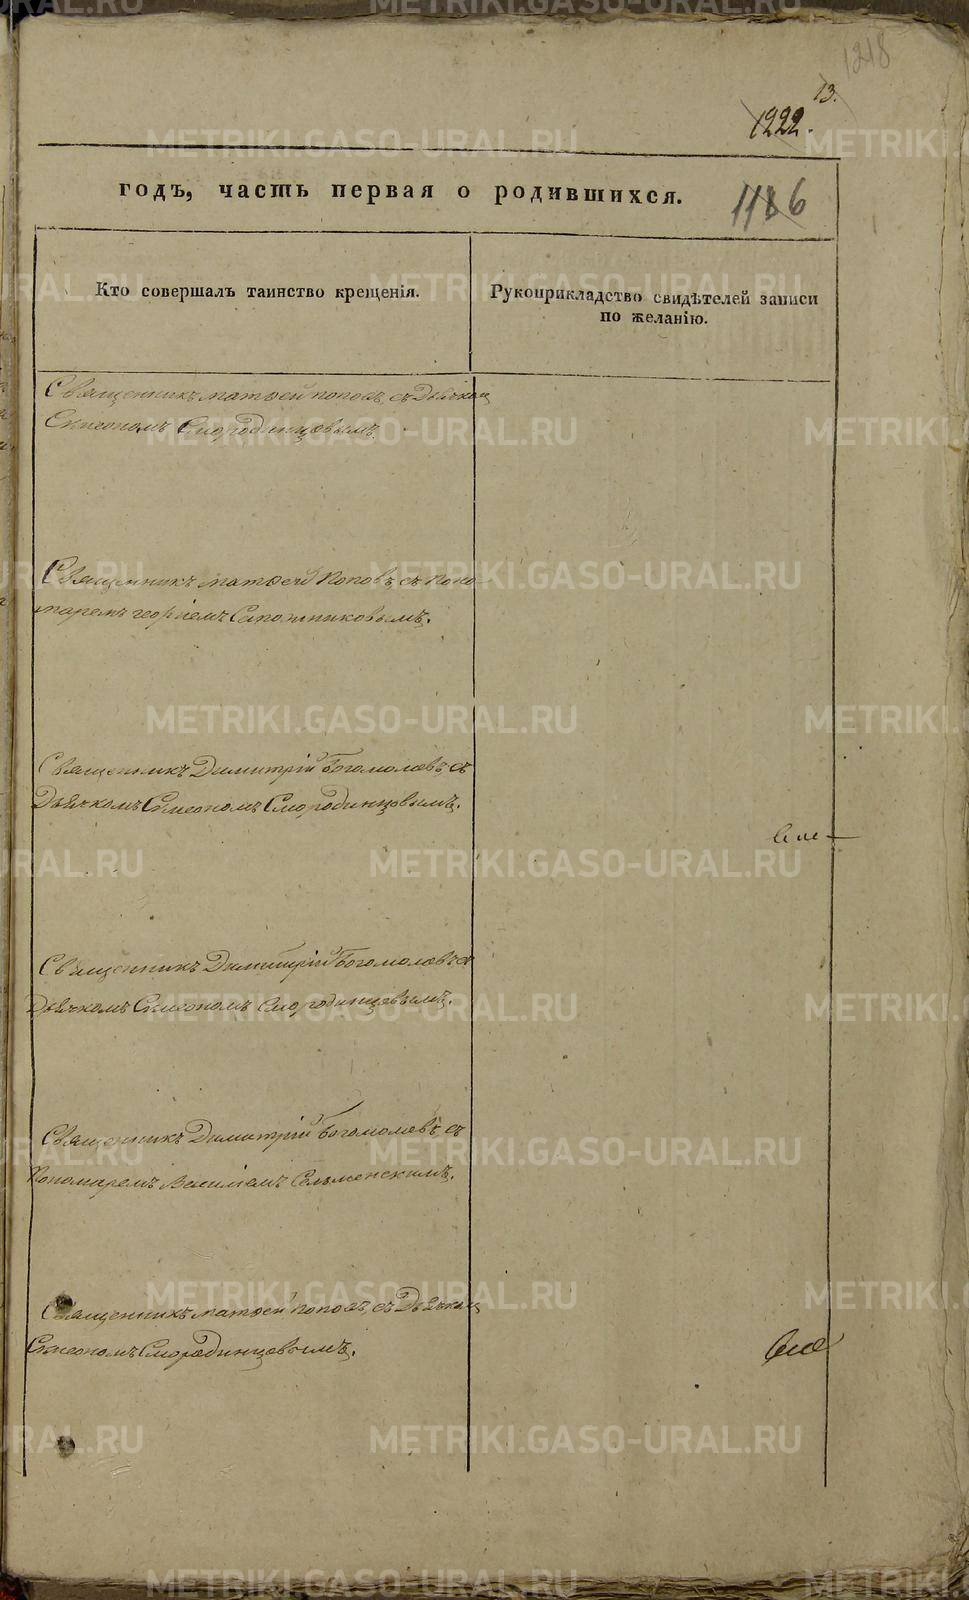 1218
13.
1222.
годъ, часть первая о родившихся.
1186
Кто совершалъ таинство крещенія.
Рукоприкладство свидѣтелей записи
по желанію.
Священникъ Матѳей Поповъ, съ Дьячком
Симеономъ Смородинцовымъ.
Священникъ Матѳей Поповъ, съ Поно-
маремъ Георгіемъ Сапожниковымъ.
Священникъ Димитрій Богомоловъ, съ
Дьячкомъ Симеономъ Смородинцовымъ.
Священникъ Димитрій Богомоловъ, съ
Дьячкомъ Симеономъ Смородинцовымъ.
Священникъ Димитрій Богомоловъ, съ
Пономаремъ Василіемъ Сельменскимъ.
Священникъ Матѳей Поповъ, съ Дьячком
Симеономъ Смородинцовымъ.
METRIKI.GASO-URAL.RU